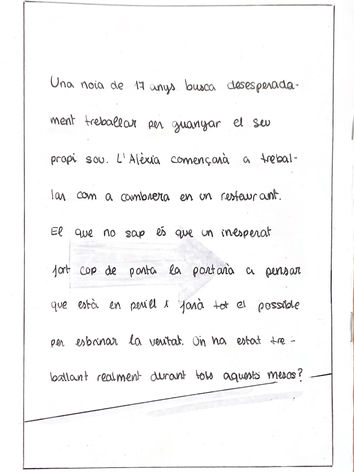 Una noia de 17 anys busca desesperada-
ment treballar per guanyar el seu
propi sou. L'Alèxia començarà a trebal-
lar com a cambrera en un restaurant.
El que no sap és que un inesperat
fort cop de porta la portarà a pensar
que està en perill i farà tot el possible
per esbrinar la veritat. On ha estat tre-
ballant realment durant tots aquests mesos?